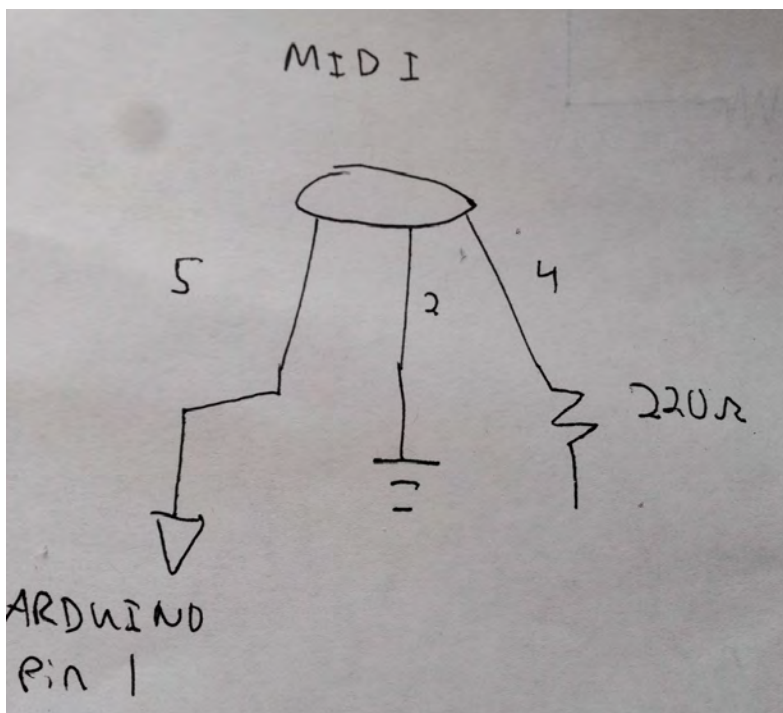 MIDI
5
2
4
220Ω
ARDUINO
Pin 1